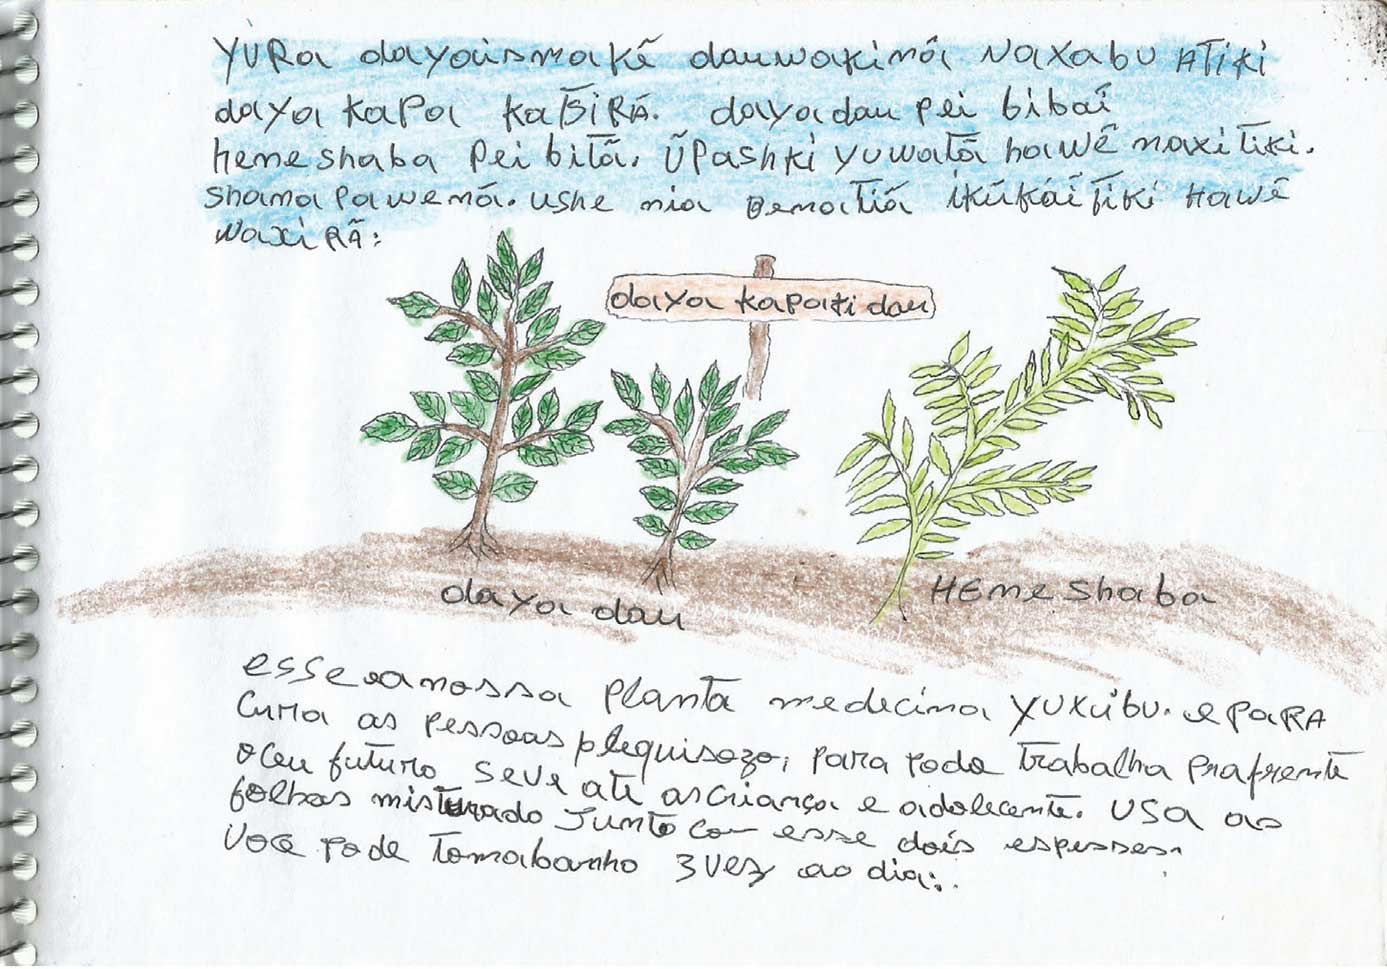 YURa dayaismakẽ dauwakinã Naxabu ATiKi
daya Kapa KaTSiRÃ. dayadau pei bibaĩ
heneshaba pei bitã. ŨPashKi yuwatã hawẽ naxiTiKi.
Shanapawenã. ushe nia benatiã iKũKãiTiKi Hawẽ
NaxiRÃ:
daya Kapati dau
daya dau
HEneshaba
esse a nossa planta medecina YUXiBU. e PaRA
Cura as pessoas pleguisozo, para pode Trabalha prafrente
o ceu futuro seve até as criança e adolecente. USA as
folhas misturado Junto com esse dois espesses.
Você pode Tomabanho 3 vez ao dia:.